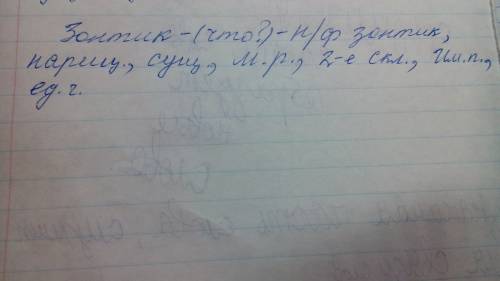 Зонтик-(что?)-н/ф зонтик,
нариц., сущ., м.р., 2-е скл., Им.п.,
ед.ч.